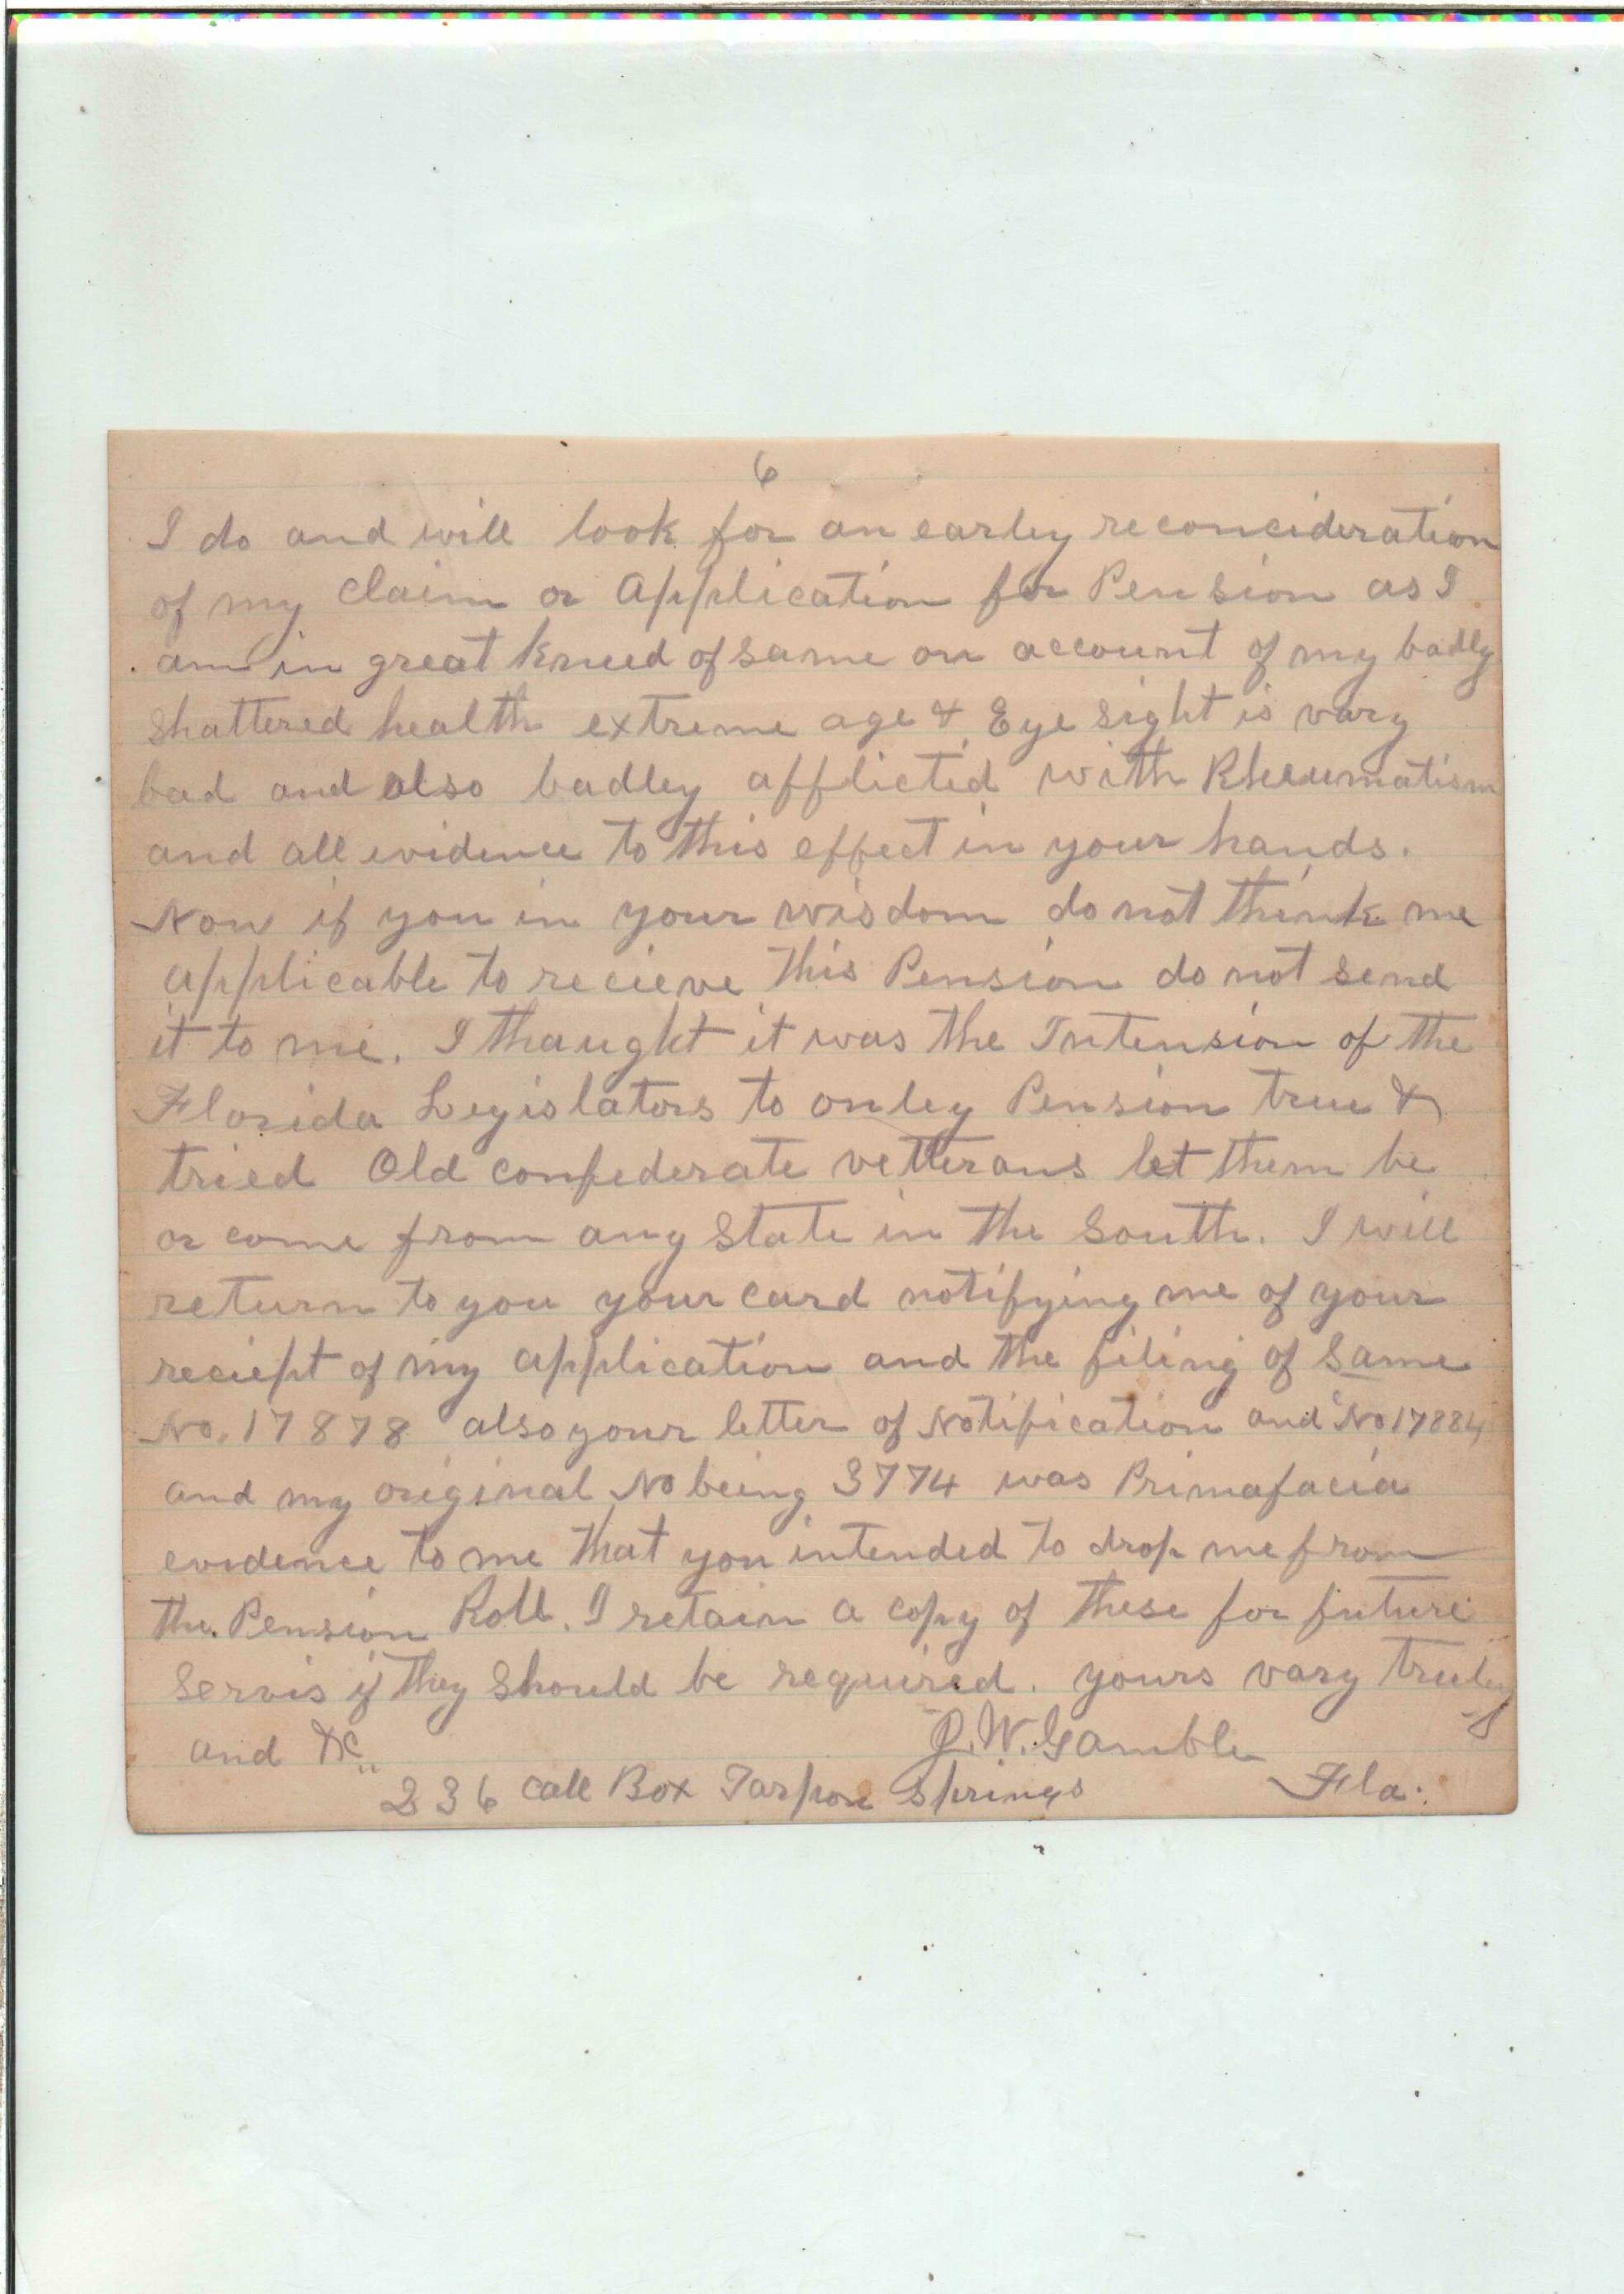 6
I do and will look for an earley reconcideration
of my claim or Application for Pension as I
am in great kneed of same on account of my badly
shattered health extreme age & Eye sight is vary
bad and also badley afflicted with Rheumatism
and all evidence to this effect in your hands.
Now if you in your wisdom do not think me
applicable to recieve this Pension do not send
it to me. I thaught it was the Intension of the
Florida Legislators to onley Pension true &
tried Old confederate vetterans let them be
or come from any State in the South. I will
return to you your card notifying me of your
reciept of my application and the filing of same
No. 17878 also your letter of Notification and No 17884
and my original No being 3774 was Primafacia
evidence to me that you intended to drop me from
the Pension Roll. I retain a copy of these for future
servis if they should be required. yours vary truley
and &c,,
J. W. Gamble
236 Call Box Tarpon Springs Fla.